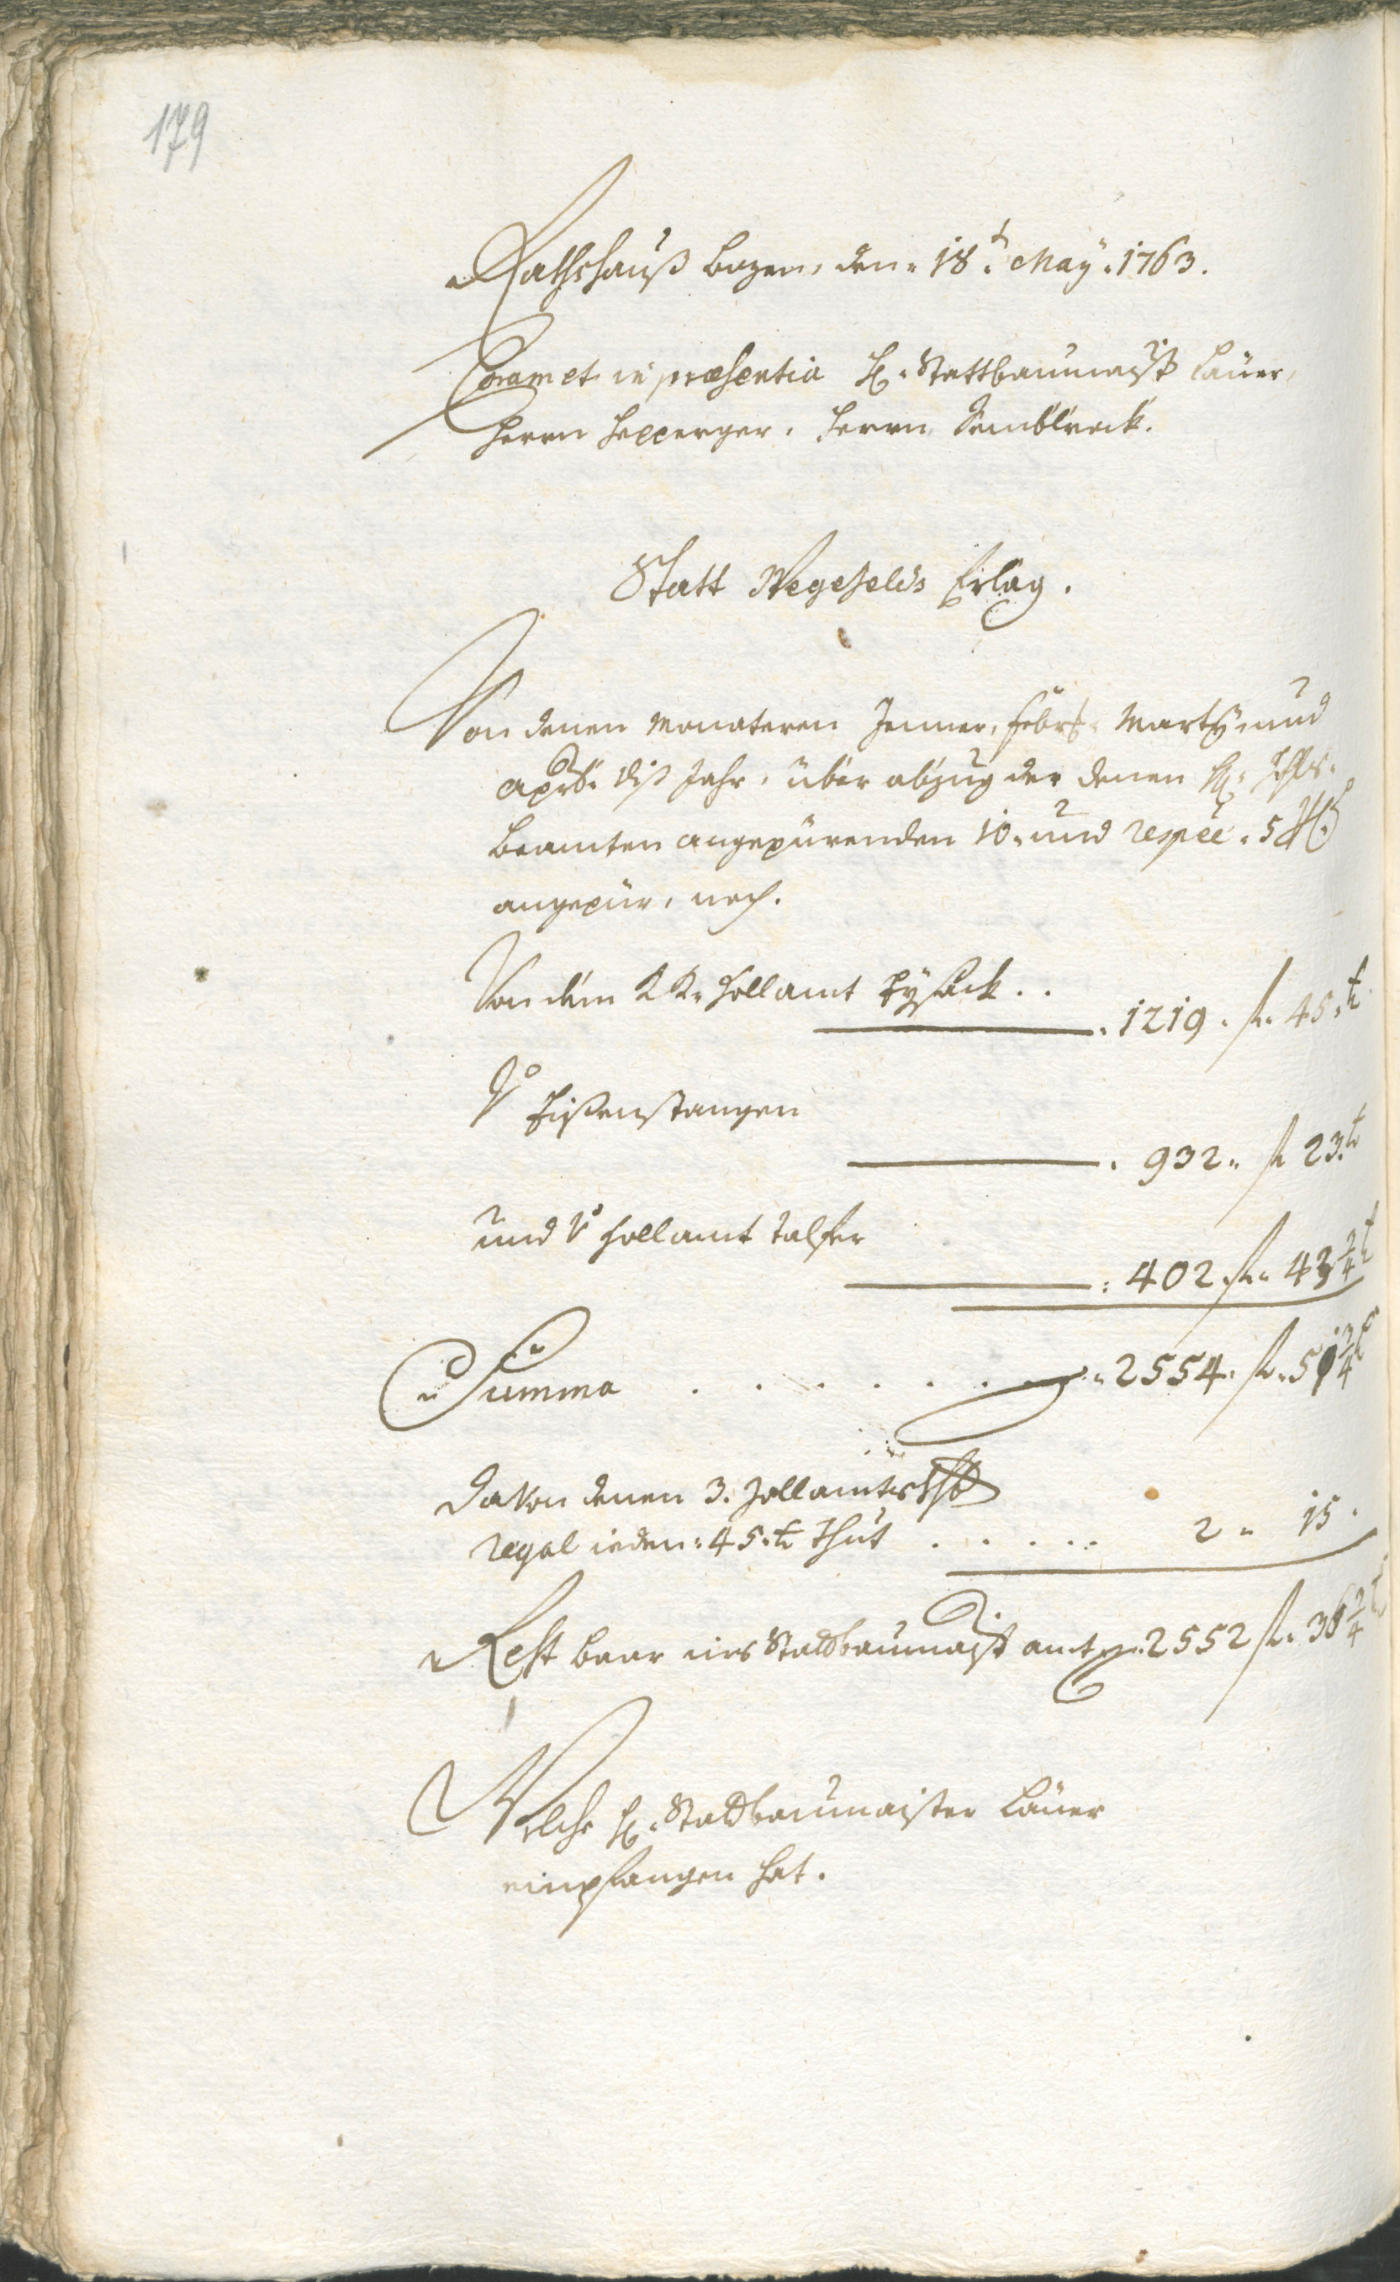 179
Rathshauß Bozen, den 18.t May 1763.
Coram et in præsentia H. Stattbaumaistr Lauer,
Herrn Hepperger. Herrn
Statt Wegeselds Erlag.
Von denen Monateren Jenner, Febr. Marty und
April diß Jahr, über abzug der denen H. Zohls-
beamten angepürenden 10. und respec. 5
angepür, nach.
Von dem KK. Zollamt Eysack . . 1219. f. 45. k
Vo Eisenstangen 932. f 23. k
und Vo Zollamt Talfer 402. f. 43 2/4 k
Summa . . . . . . . 2554. f. 51 2/4 k
Davon denen 3. Zollamtrs
regal ieden 45. k thut . . . . . 2 15.
Rest baar ins Stadtbaumaistr amt 2552 f. 36 2/4 k
Welche H. Stadtbaumaister Lauer
empfangen hat.